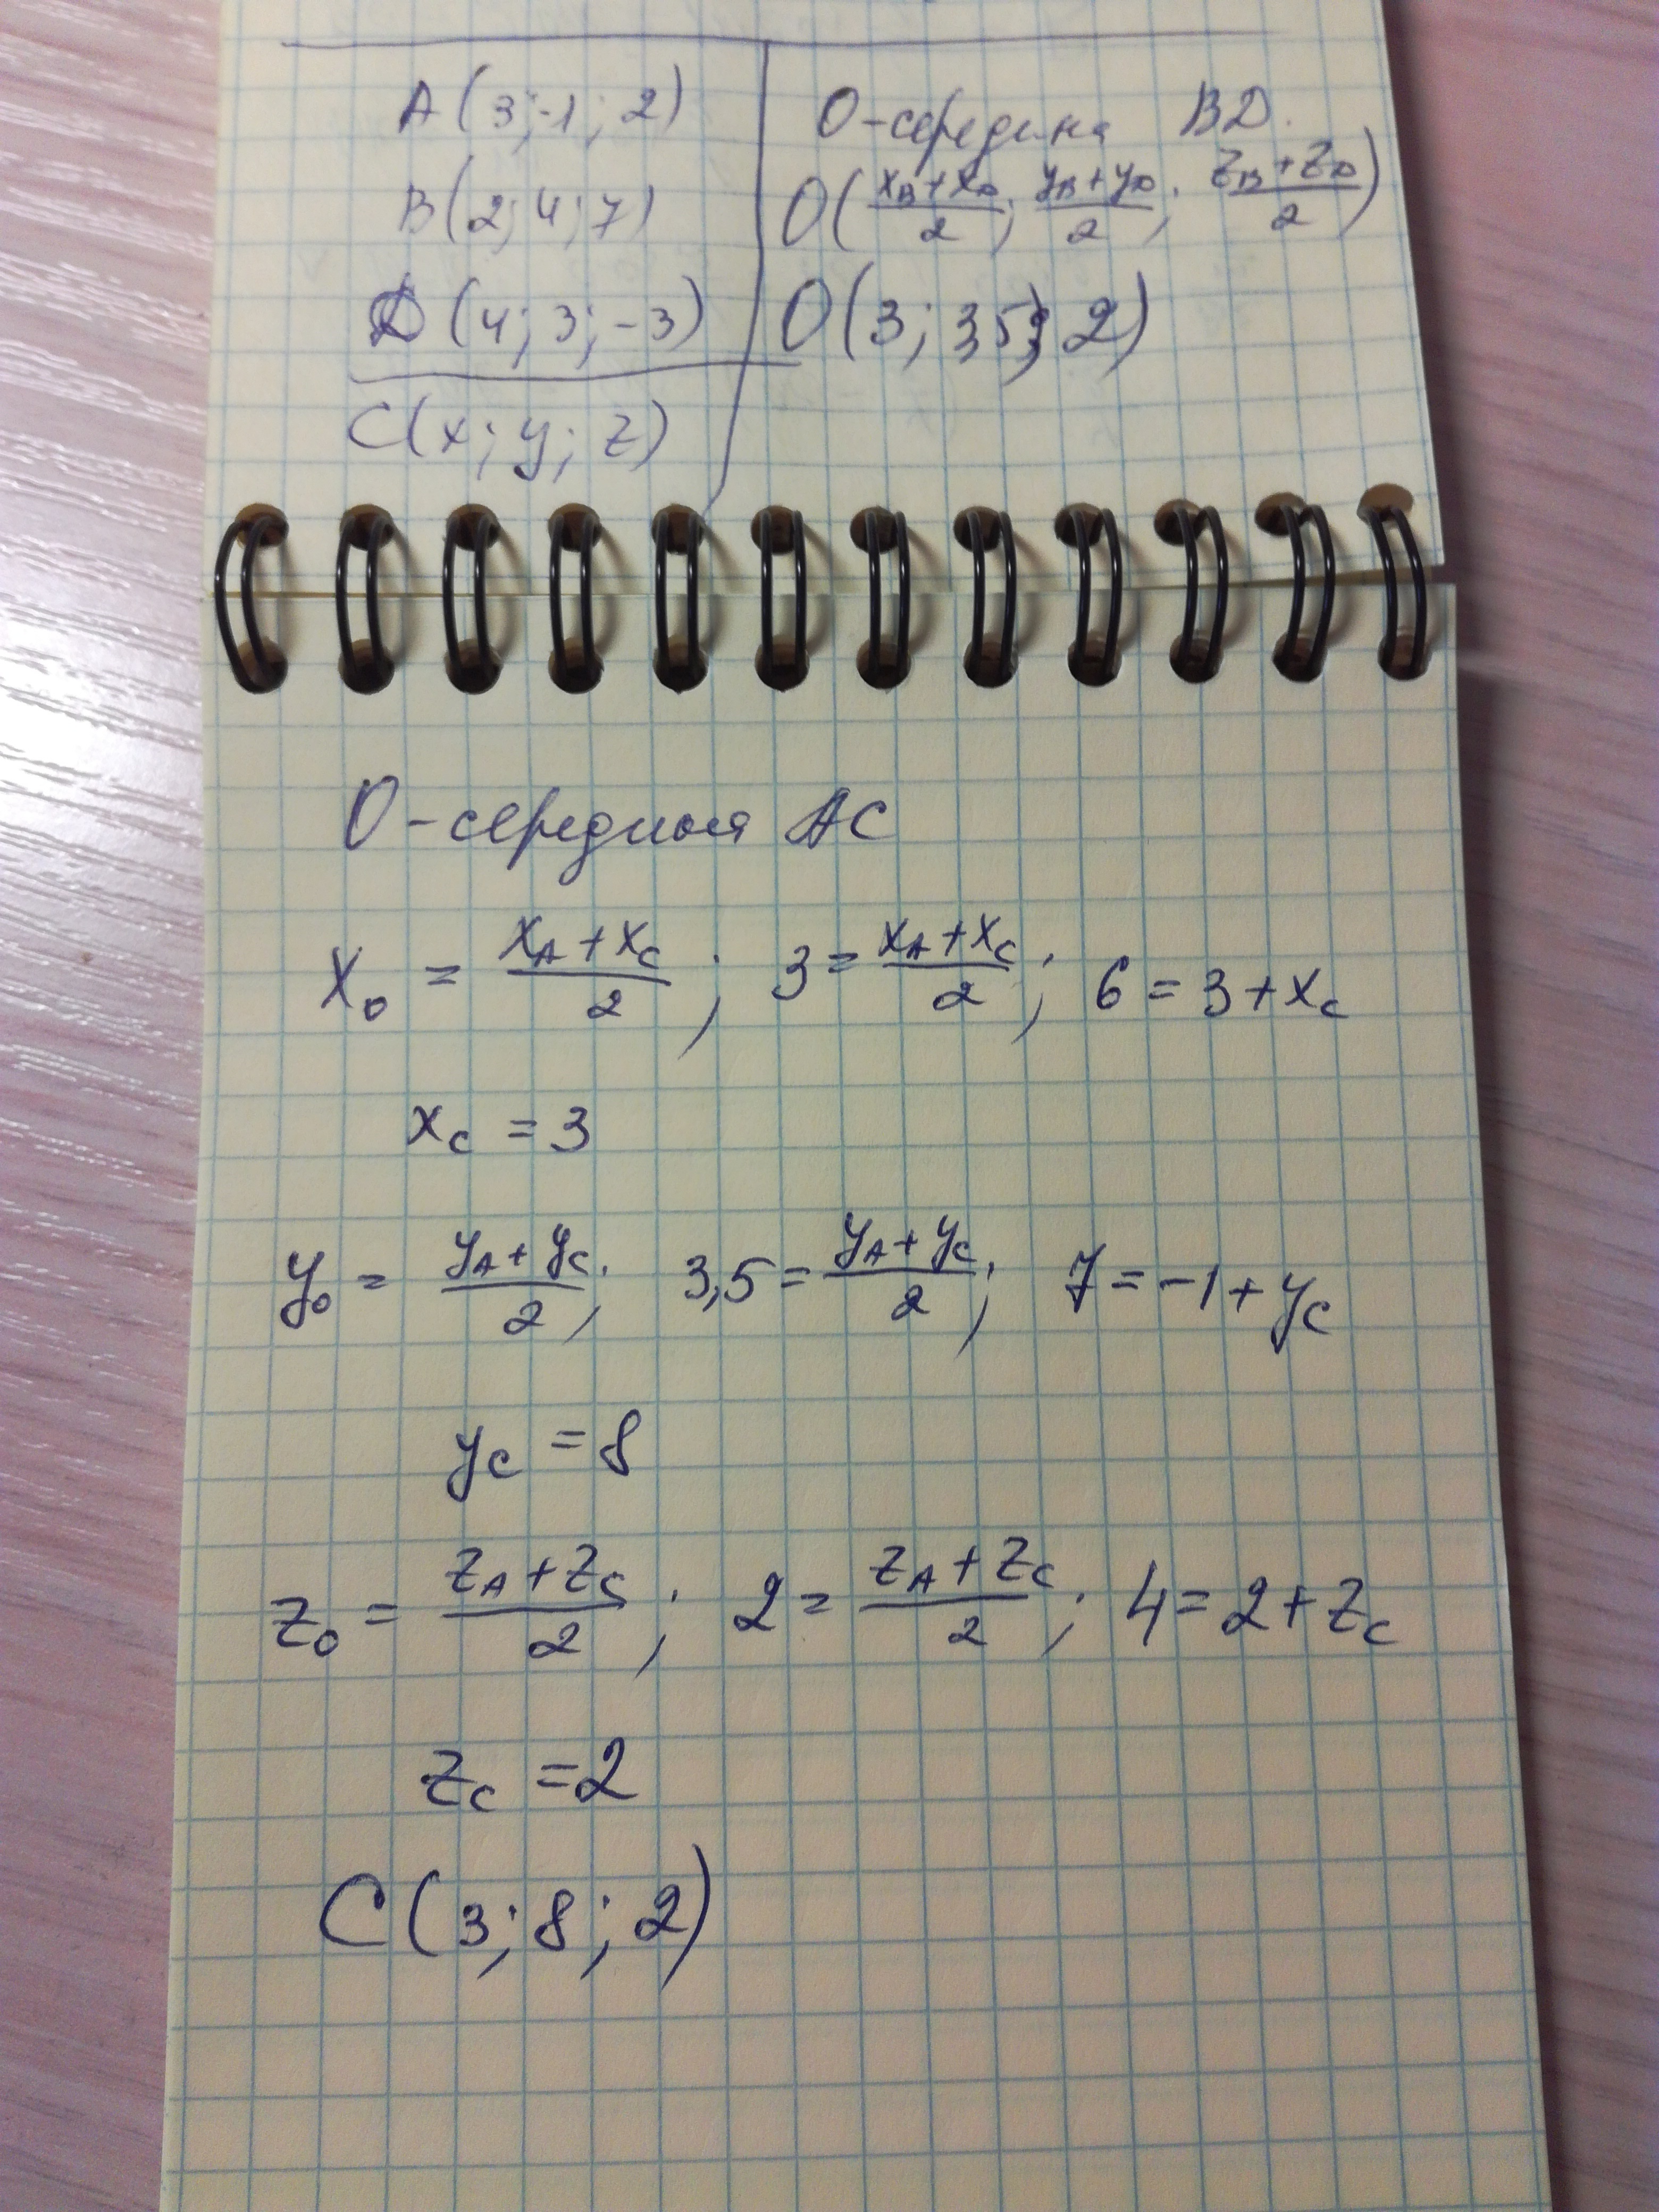 A(3;-1;2)
B(2;4;7)
D(4;3;-3)
C(x;y;z)
O-середина BD.
O((x_B+x_D)/2; (y_B+y_D)/2; (z_B+z_D)/2)
O(3; 3,5; 2)
O-середина AC
x_0 = (x_A+x_C)/2; 3 = (x_A+x_C)/2; 6 = 3+x_C
x_C = 3
y_0 = (y_A+y_C)/2; 3,5 = (y_A+y_C)/2; 7 = -1+y_C
y_C = 8
z_0 = (z_A+z_C)/2; 2 = (z_A+z_C)/2; 4 = 2+z_C
z_C = 2
C(3;8;2)